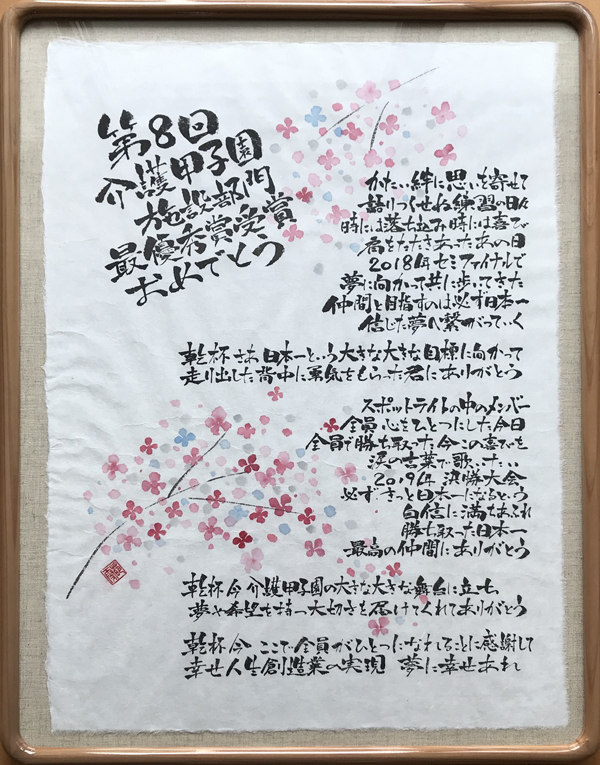 第8回
介護甲子園
施設部門
最優秀賞受賞
おめでとう
かたい絆に思いを寄せて
語りつくせぬ練習の日々
時には落ち込み時には喜び
肩をたたきあったあの日
2018年セミファイナルで
夢に向かって共に歩いてきた
仲間と目指すのは必ず日本一
信じた夢へ繋がっていく
乾杯さあ日本一という大きな大きな目標に向かって
走り出した背中に勇気をもらった君にありがとう
スポットライトの中のメンバー
全員心をひとつにした今日
全員で勝ち取った今この喜びを
涙の言葉で歌いたい
2019年決勝大会
必ずきっと日本一になるという
自信に満ちあふれ
勝ち取った日本一
最高の仲間にありがとう
乾杯今介護甲子園の大きな大きな舞台に立ち
夢や希望を持つ大切さを届けてくれてありがとう
乾杯今ここで全員がひとつになれることに感謝して
幸せ人生創造業の実現 夢に幸せあれ